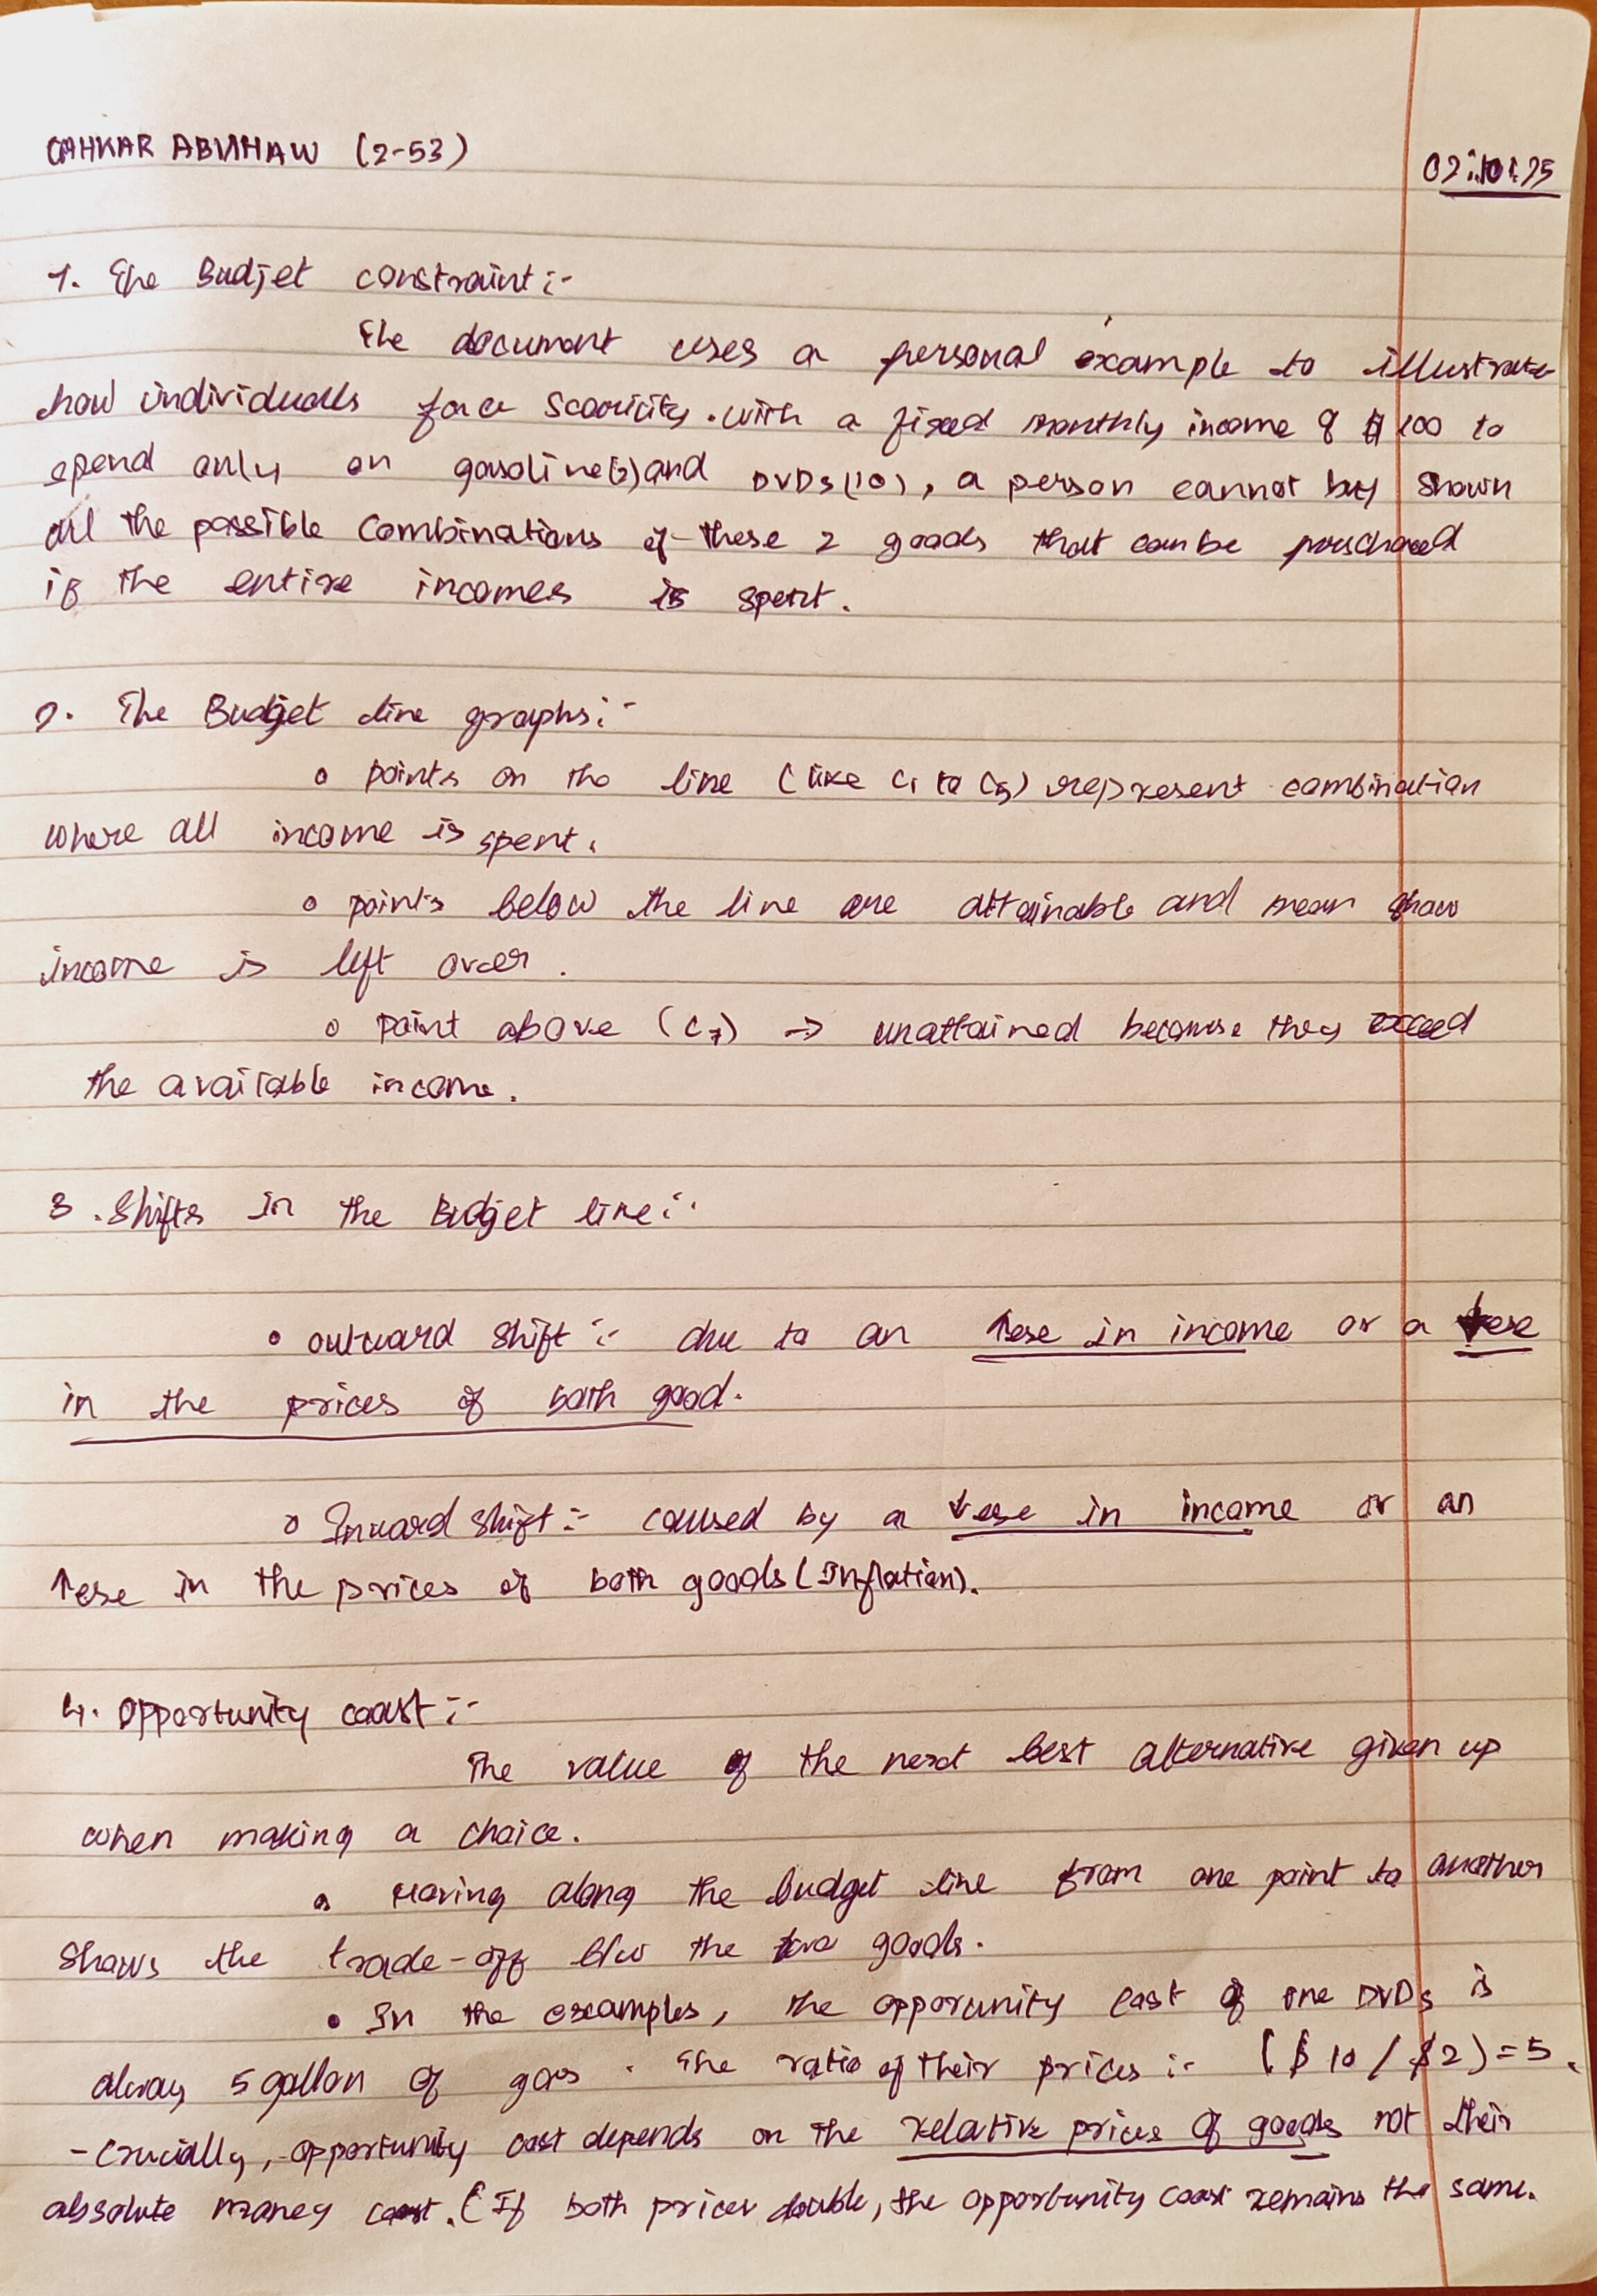 (2-53)
1. The Budjet constraint :-
The document uses a personal example to illustrate
how individuals face Scaricity. with a fixed monthly income of $ 100 to
spend only on gasoline(2) and DVDs(10), a person cannot buy shown
all the possible Combinations of these 2 goods that can be purchased
if the entire incomes is spent.
2. The Budjet line graphs :-
o points on the line (like C1 to C5) represent combination
where all income is spent.
o points below the line are attainable and mean
income is left over.
o point above (C7) → unattained because they exceed
the available income.
3. Shifts in the Budjet line :-
o outward shift :- due to an ↑ese in income or a ↓ese
in the prices of both good.
o Inward shift :- caused by a ↓ese in income or an
↑ese in the prices of both goods (Inflation).
4. Opportunity coast :-
The value of the next best alternative given up
when making a choice.
o Moving along the budget line from one point to another
shows the trade-off b/w the two goods.
• In the examples, the opporunity cost of one DVDs is
alway 5 gallon of gas. The ratio of their prices :- ($ 10 / $2) = 5.
- Crucially, opportunity cost depends on the relative prices of goods not their
absolute money cost. (If both prices double, the opportunity coast remains the same.